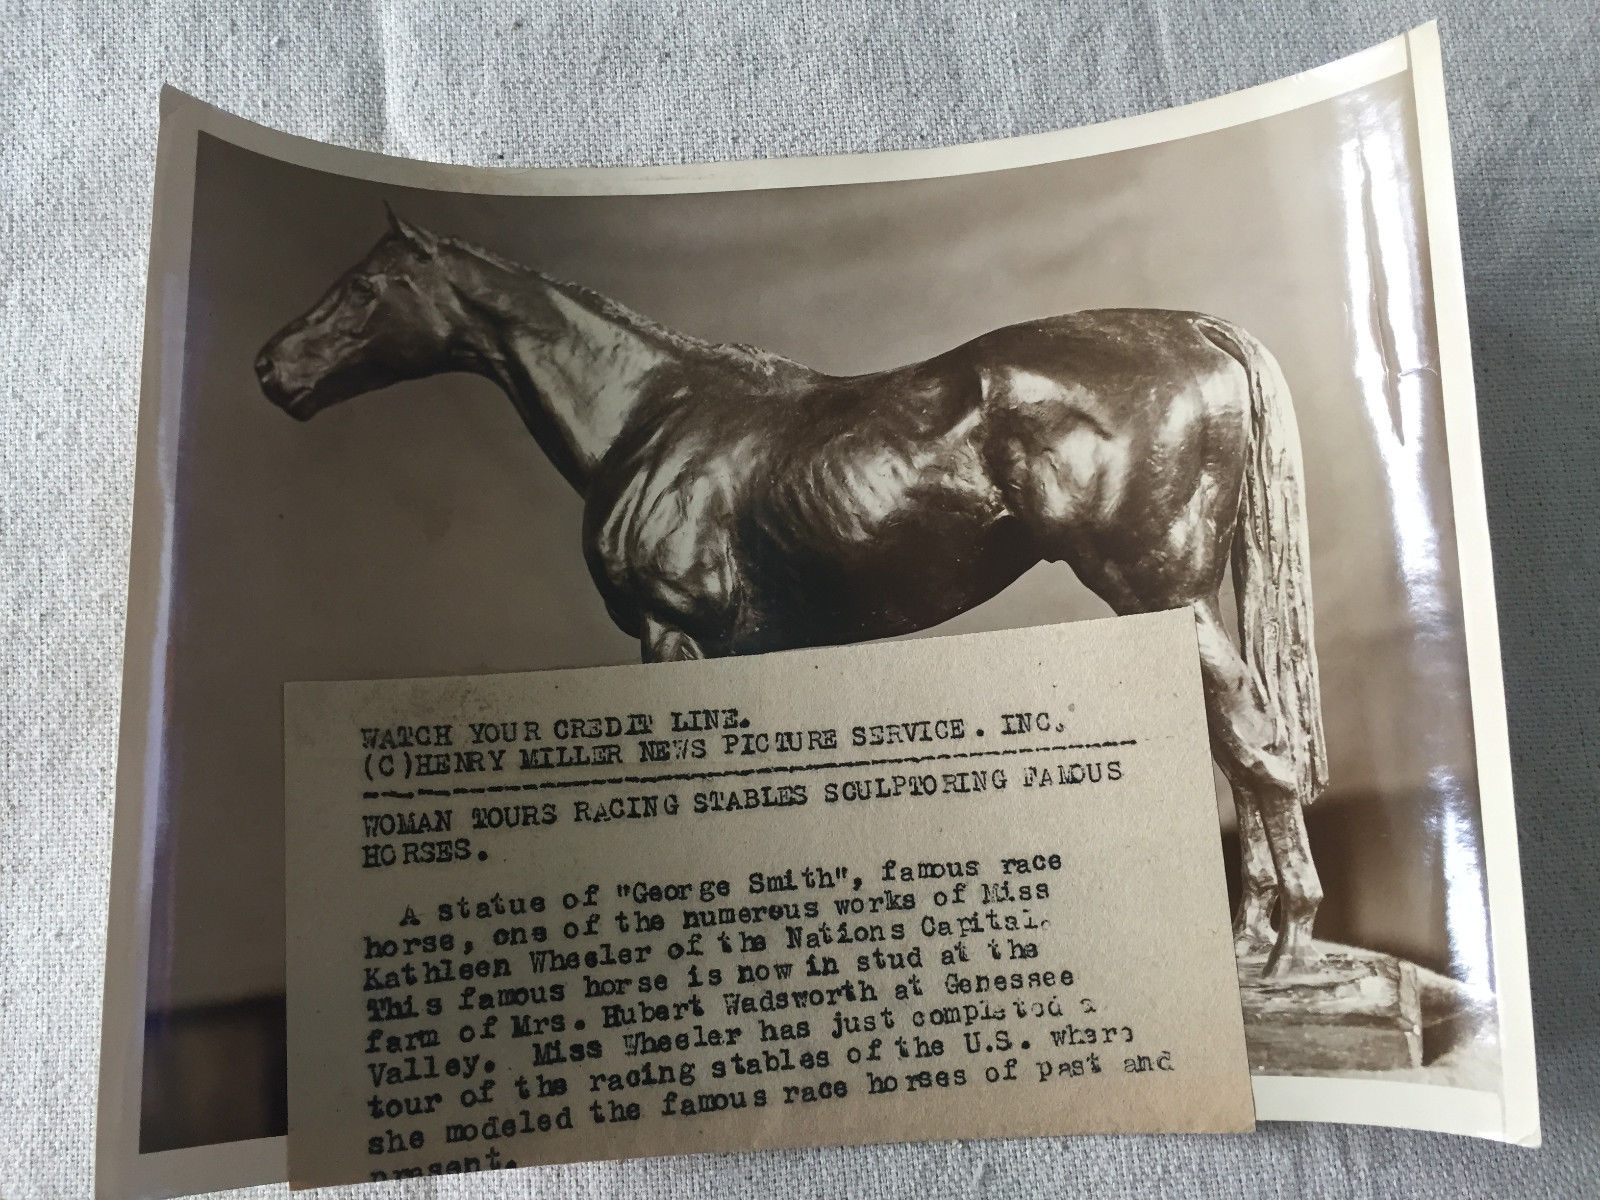 WATCH YOUR CREDIT LINE.
(C)HENRY MILLER NEWS PICTURE SERVICE. INC.
WOMAN TOURS RACING STABLES SCULPTORING FAMOUS
HORSES.
A statue of "George Smith", famous race
horse, one of the numerous works of Miss
Kathleen Wheeler of the Nations Capital.
This famous horse is now in stud at the
farm of Mrs. Hubert Wadsworth at Genessee
Valley. Miss Wheeler has just completed a
tour of the racing stables of the U.S. where
she modeled the famous race horses of past and
present.